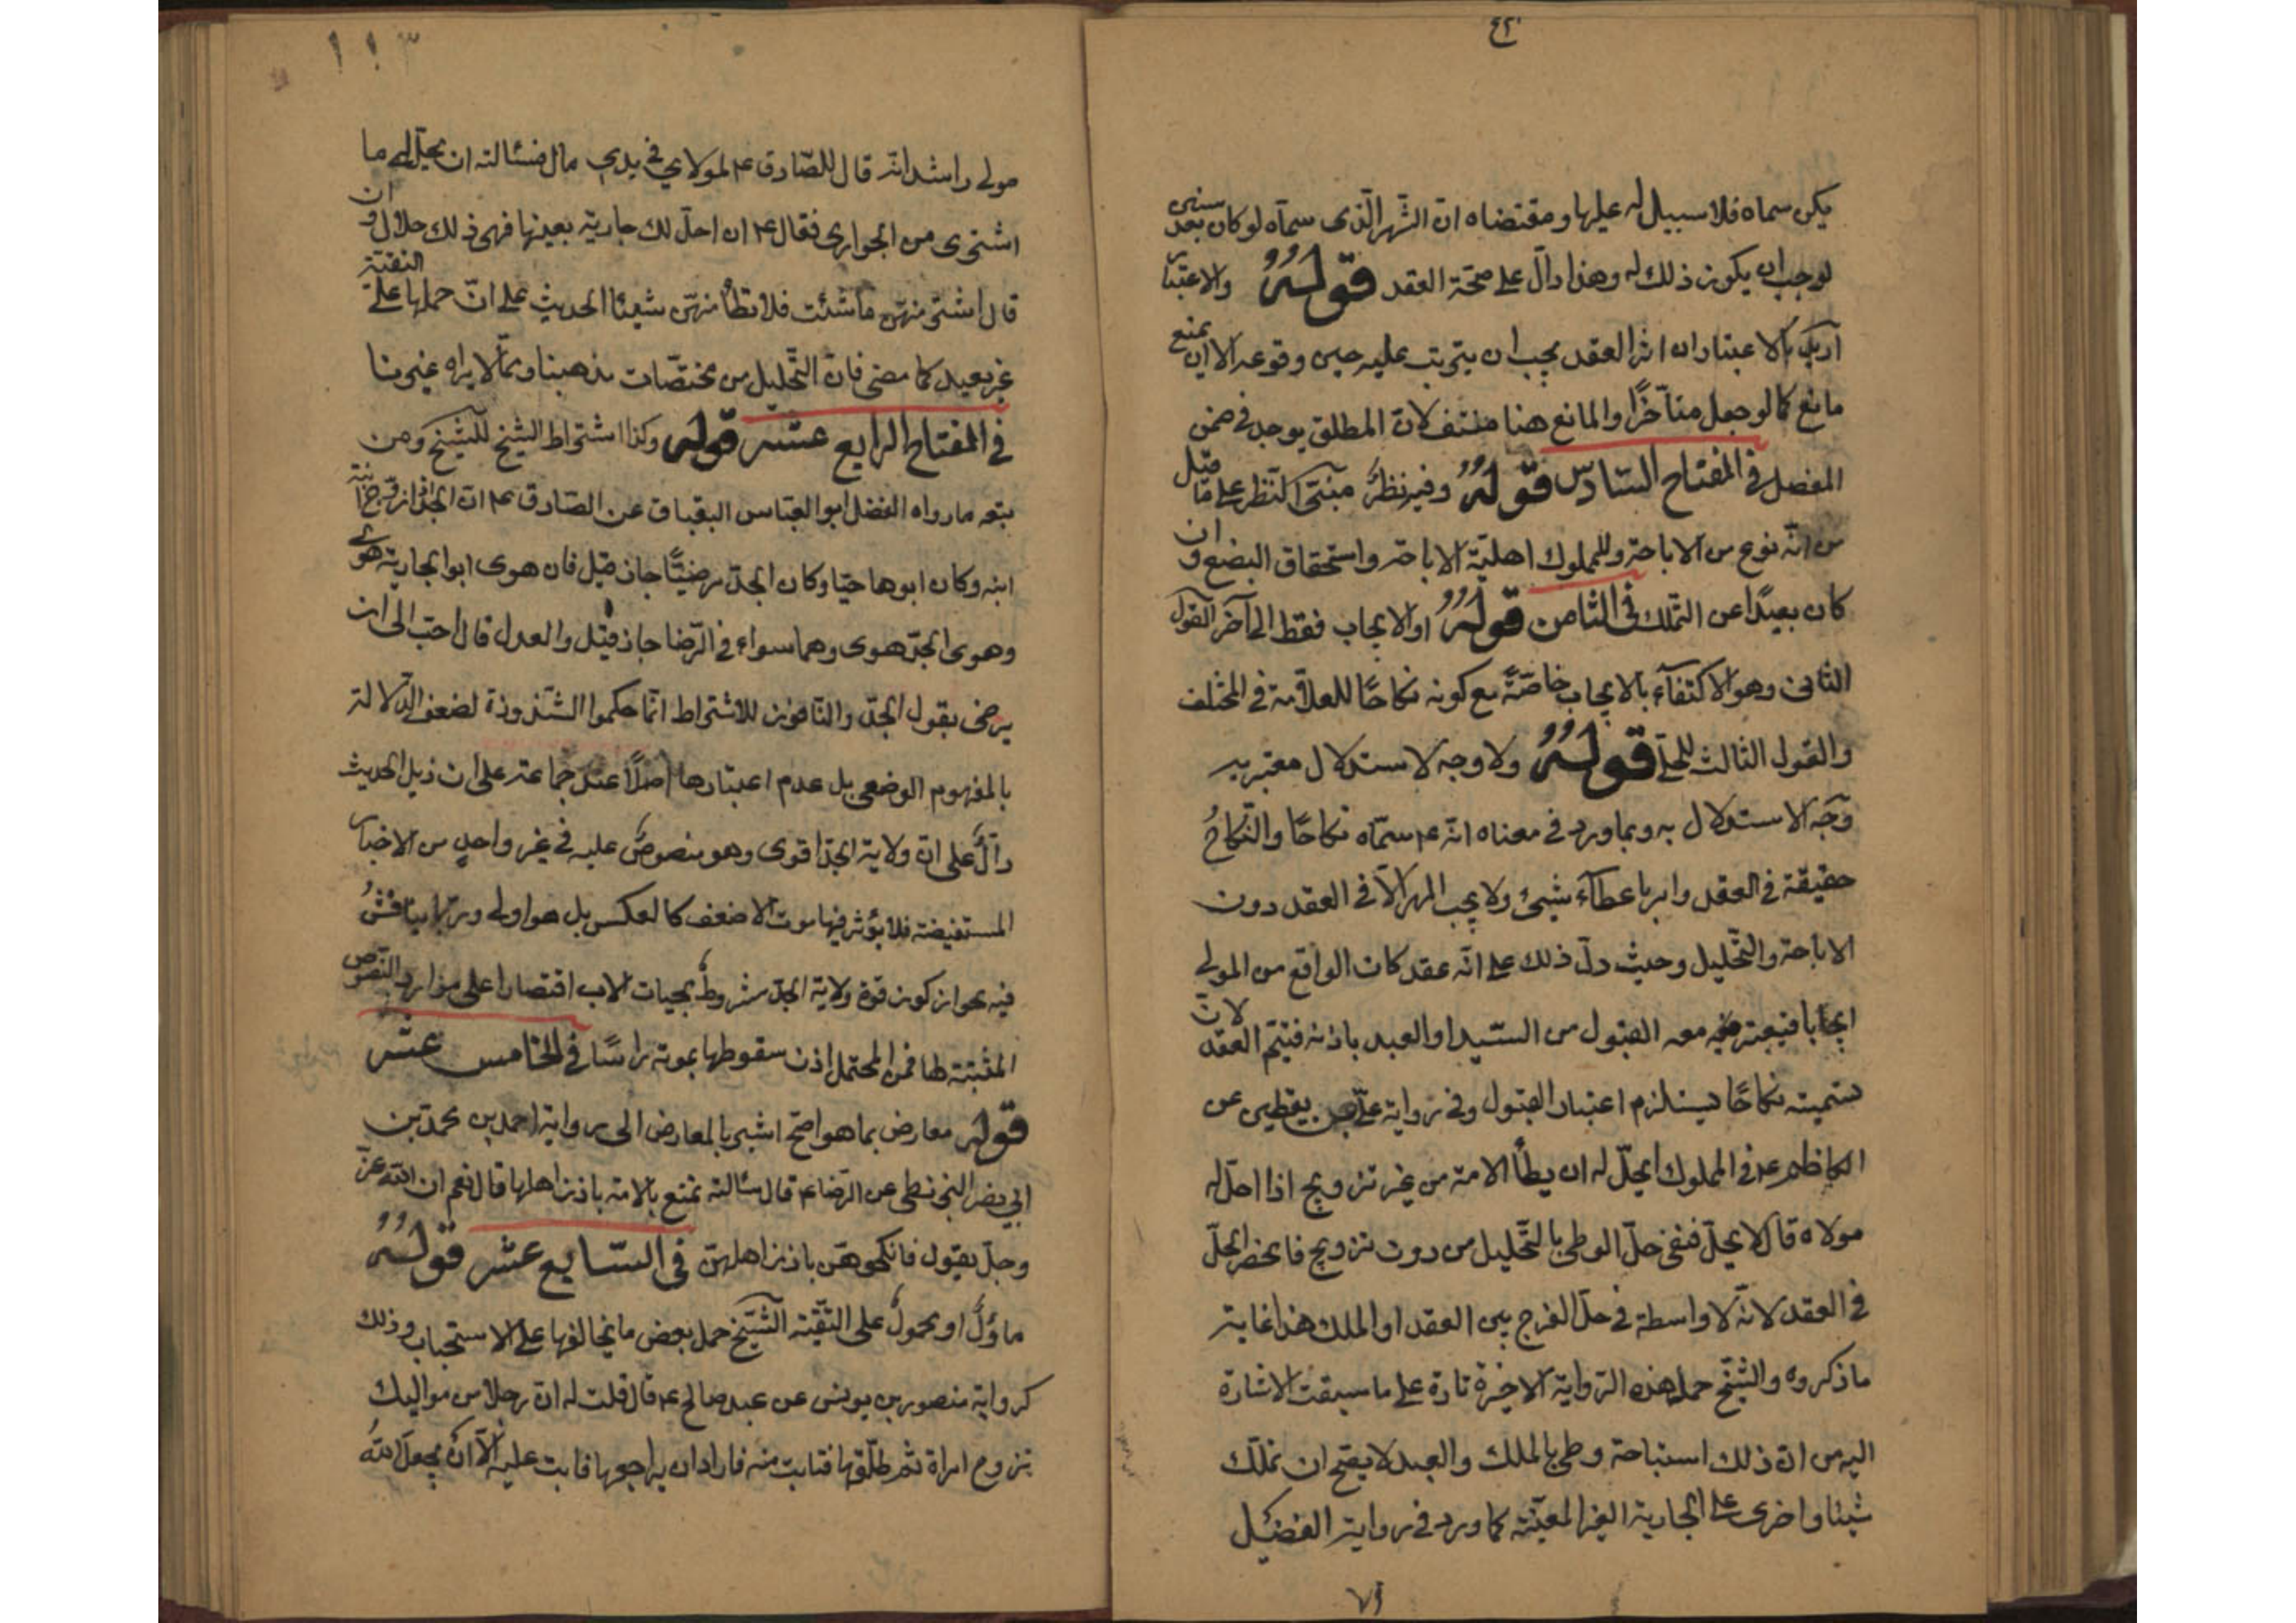 ٤٢٠
يكن سماه فلا سبيل له عليها ومقتضاه ان الشهر الذى سماه لو كان بعد سنتين
لوجب ان يكون ذلك له وهذا دالّ على صحّة العقد قولهُ والاعتبار
اريد بالاعتبار ان اثر العقد يجب ان يترتب عليه حين وقوعه الا ان يمنع
مانع كما لو جعل متأخرًا والمانع هنا منتف لانّ المطلق يوجد فى ضمن
المفصل فى المفتاح السّادس قولهُ وفيه نظرٌ مبنى النّظر على ما قيل
من انّه نوع من الاباحة وللمملوك اهليّة الاباحة واستحقاق البضع و ان
كان بعيدًا عن التملك فى الثامن قولهُ او الايجاب فقط الى آخر القول
الثانى وهو الاكتفاء بالايجاب خاصّةً مع كونه نكاحًا للعلاّمة فى المختلف
والقول الثالث للحلّى قولهُ ولا وجه لاستدلال معتبريه
وجه الاستدلال به وبما ورد فى معناه انّه ع سمّاه نكاحًا والنّكاحُ
حقيقة فى العقد وامر باعطاء شيئ ولا يجب المهر الاّ فى العقد دون
الاباحة والتّحليل وحيث دلّ ذلك على انّه عقد كان الواقع من المولى
ايجابا فيعتبر معه القبول من السّيد او العبد باذنه فيتم العقد لانّ
تسميته نكاحًا يستلزم اعتبار القبول وفى رواية علىّ بن يقطين عن
الكاظم ع فى المملوك ايحلّ له ان يطأ الامة من غير تزويج اذا احلّ له
مولاه قال لا يحلّ فنفى حلّ الوطى بالتّحليل من دون تزويج فانحصر الحلّ
فى العقد لانّه لا واسطة فى حلّ الفرج بين العقد او الملك هذا غاية
ما ذكروه والشّيخ حمل هذه الرّواية الاخيرة تارة على ما سبقت الاشارة
اليه من انّ ذلك استباحة وطى بالملك والعبد لا يصح ان تملّك
شيئا واخرى على الجارية الغير المعيّنة كما ورد فى رواية الفضيل
٧٩
١١٣
مولى راشد انّه قال للصّادق ع لمولاي فى يدي مال فسئالته ان يحلّ لى ما
اشترى من الجوارى فقال ع ان احلّ لك جارية بعينها فهى ذلك حلال و ان
قال اشتر منهنّ ما شئت فلا تطأ منهنّ شيئا الحديث على انّ حملها على التقيّة
غير بعيد كما مضى فانّ التّحليل من مختصّات مذهبنا وممّا لا يراه غيرنا
فى المفتاح الرابع عشر قوله وكذا اشتراط الشيخ للشيخ ومن
تبعه ما رواه الفضل ابو العبّاس البقباق عن الصّادق ع انّ الجدّ اذا زوّج ابنة
ابنه وكان ابوها حيّا وكان الجدّ مرضيًّا جاز قيل فان هوى ابو الجارية هوى
وهوى الجدّ هوى وهما سواء فى الرّضا جاز قيل والعدل قال احبّ الى ان
يرضى بقول الجدّ والنّافون للاشتراط انّما حكموا الشّذوذة لضعف الدّلالة
بالمفهوم الوضعى بل عدم اعتبارها اصلًا عند جماعة على ان ذيل الحديث
دالّ على انّ ولاية الجدّ اقوى وهو منصوصٌ عليه فى غير واحدٍ من الاخبار
المستفيضة فلا يؤثر فيها موت الاضعف كالعكس بل هو اولى وربّما يناقشُ
فيه بجواز كون قوة ولاية الجدّ مشروط بحيات الاب اقتصارا على موارد النّصوص
المثبتة لها فمن المحتمل اذن سقوطها بموته راسًا فى الخامس عشر
قوله معارض بما هو اصحّ اشير بالمعارض الى رواية احمد بن محمد بن
ابي نصر البزنطى عن الرّضا ع قال سئالته تمتع بالامة باذن اهلها قال نعم ان اللّه عزّ
وجلّ يقول فانكحوهنّ باذن اهلهنّ فى السّابع عشر قولهُ
ماؤلٌ او محمولٌ على التّقيّة الشّيخ حمل بعض ما يخالفها على الاستحباب وذلك
كرواية منصور بن يونس عن عبد صالح ع قال قلت له انّ رجلا من مواليك
تزوج امراة ثم طلّقها فبانت منه فاراد ان يراجعها فابت عليه الاّ ان يجعل للّه